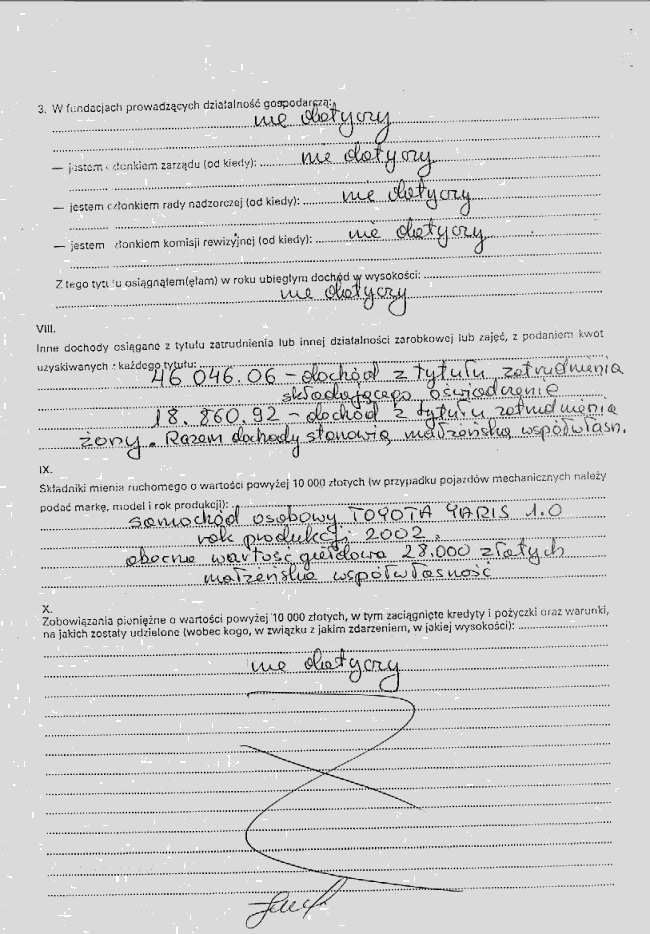 3. W fundacjach prowadzących działalność gospodarczą:
nie dotyczy
— jestem członkiem zarządu (od kiedy): nie dotyczy
— jestem członkiem rady nadzorczej (od kiedy): nie dotyczy
— jestem członkiem komisji rewizyjnej (od kiedy): nie dotyczy
Z tego tytułu osiągnąłem(ęłam) w roku ubiegłym dochód w wysokości:
nie dotyczy
VIII.
Inne dochody osiągane z tytułu zatrudnienia lub innej działalności zarobkowej lub zajęć, z podaniem kwot
uzyskiwanych z każdego tytułu:
46 046.06 – dochód z tytułu zatrudnienia
składającego oświadczenie
18.860.92 – dochód z tytułu zatrudnienia
żony. Razem dochody stanowią małżeńską współwłasn.
IX.
Składniki mienia ruchomego o wartości powyżej 10 000 złotych (w przypadku pojazdów mechanicznych należy
podać markę, model i rok produkcji):
samochód osobowy TOYOTA YARIS 1.0
rok produkcji 2002.
obecna wartość giełdowa 28.000 złotych
małżeńska współwłasność
X.
Zobowiązania pieniężne o wartości powyżej 10 000 złotych, w tym zaciągnięte kredyty i pożyczki oraz warunki,
na jakich zostały udzielone (wobec kogo, w związku z jakim zdarzeniem, w jakiej wysokości):
nie dotyczy